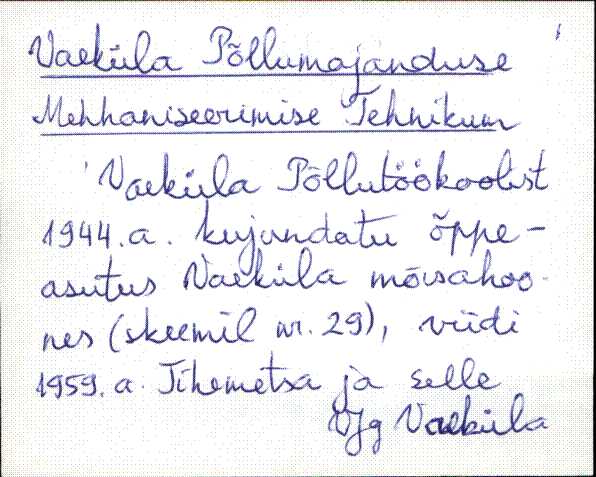 Vaeküla Põllumajanduse
Mehhaniseerimise Tehnikum
Vaeküla Põllutöökoolist
1944.a. kujundatu õppe-
asutus Vaeküla mõisahoo-
nes (skeemil nr. 29), viidi
1959.a. Tihemetsa ja selle
VJg Vaeküla